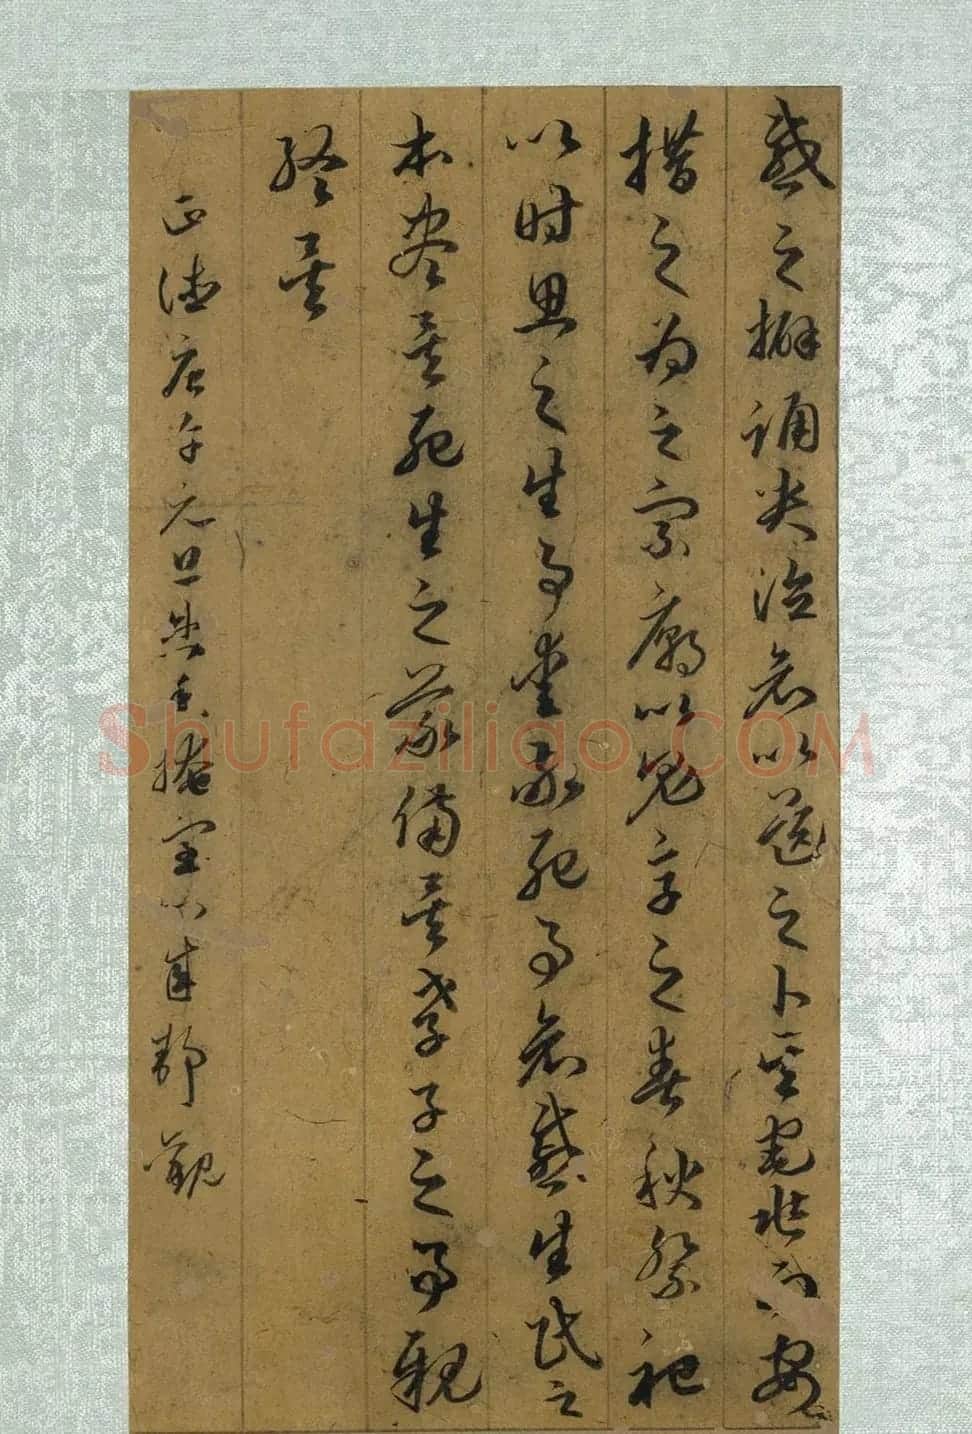 慼之擗踊哭泣哀以送之卜其宅兆而安
措之為之宗廟以鬼享之春秋祭祀
以時思之生事愛敬死事哀慼生民之
本盡矣死生之義備矣孝子之事親
終矣
正德庚午元旦焚香掩室靜觀
Shufaziliao.COM